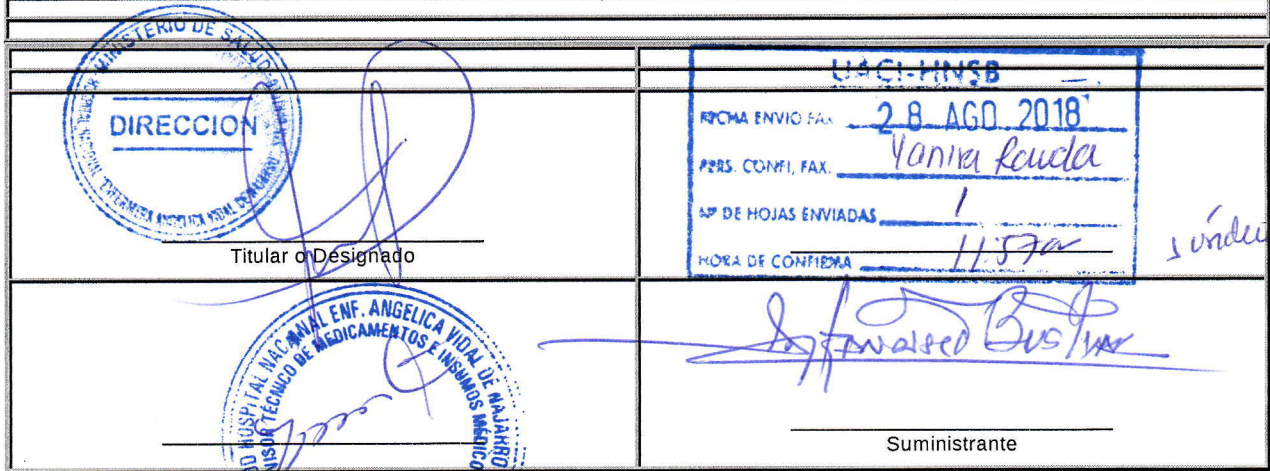 MINISTERIO DE SALUD
DIRECCION
ENFERMERA ANGELICA VIDAL DE NAJARRO
Titular o Designado
UACI-HNSB
FECHA ENVIO FAX. 28 AGO 2018
PERS. CONFI, FAX. Yanira Rauda
Nº DE HOJAS ENVIADAS 1
HORA DE CONFIRMA 11:57a
HOSPITAL NACIONAL ENF. ANGELICA VIDAL DE NAJARRO
TÉCNICO DE MEDICAMENTOS E INSUMOS MÉDICO
Suministrante